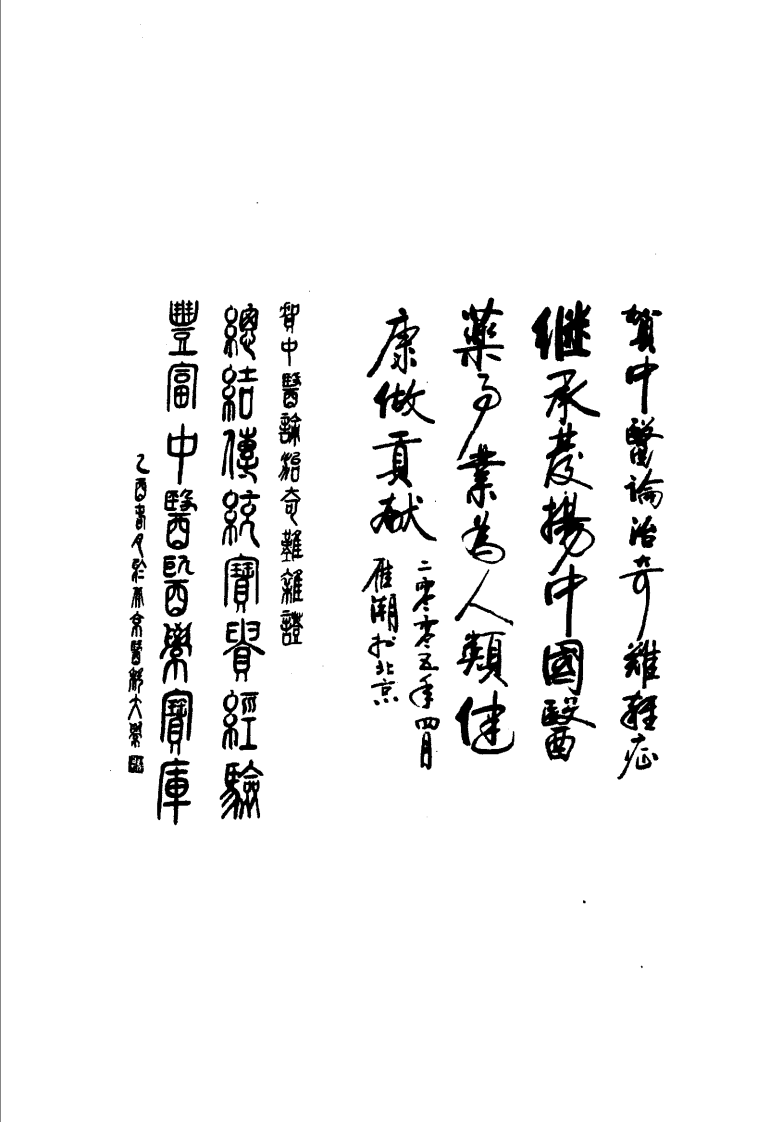 賀中醫論治奇難雜症
继承發揚中國醫
藥事業為人類健
康做貢献
二零零五年四月
雁湖於北京
賀中醫論治奇難雜證
總結傳統寶貴經驗
豐富中醫醫學寶庫
乙酉春月於南京醫科大學